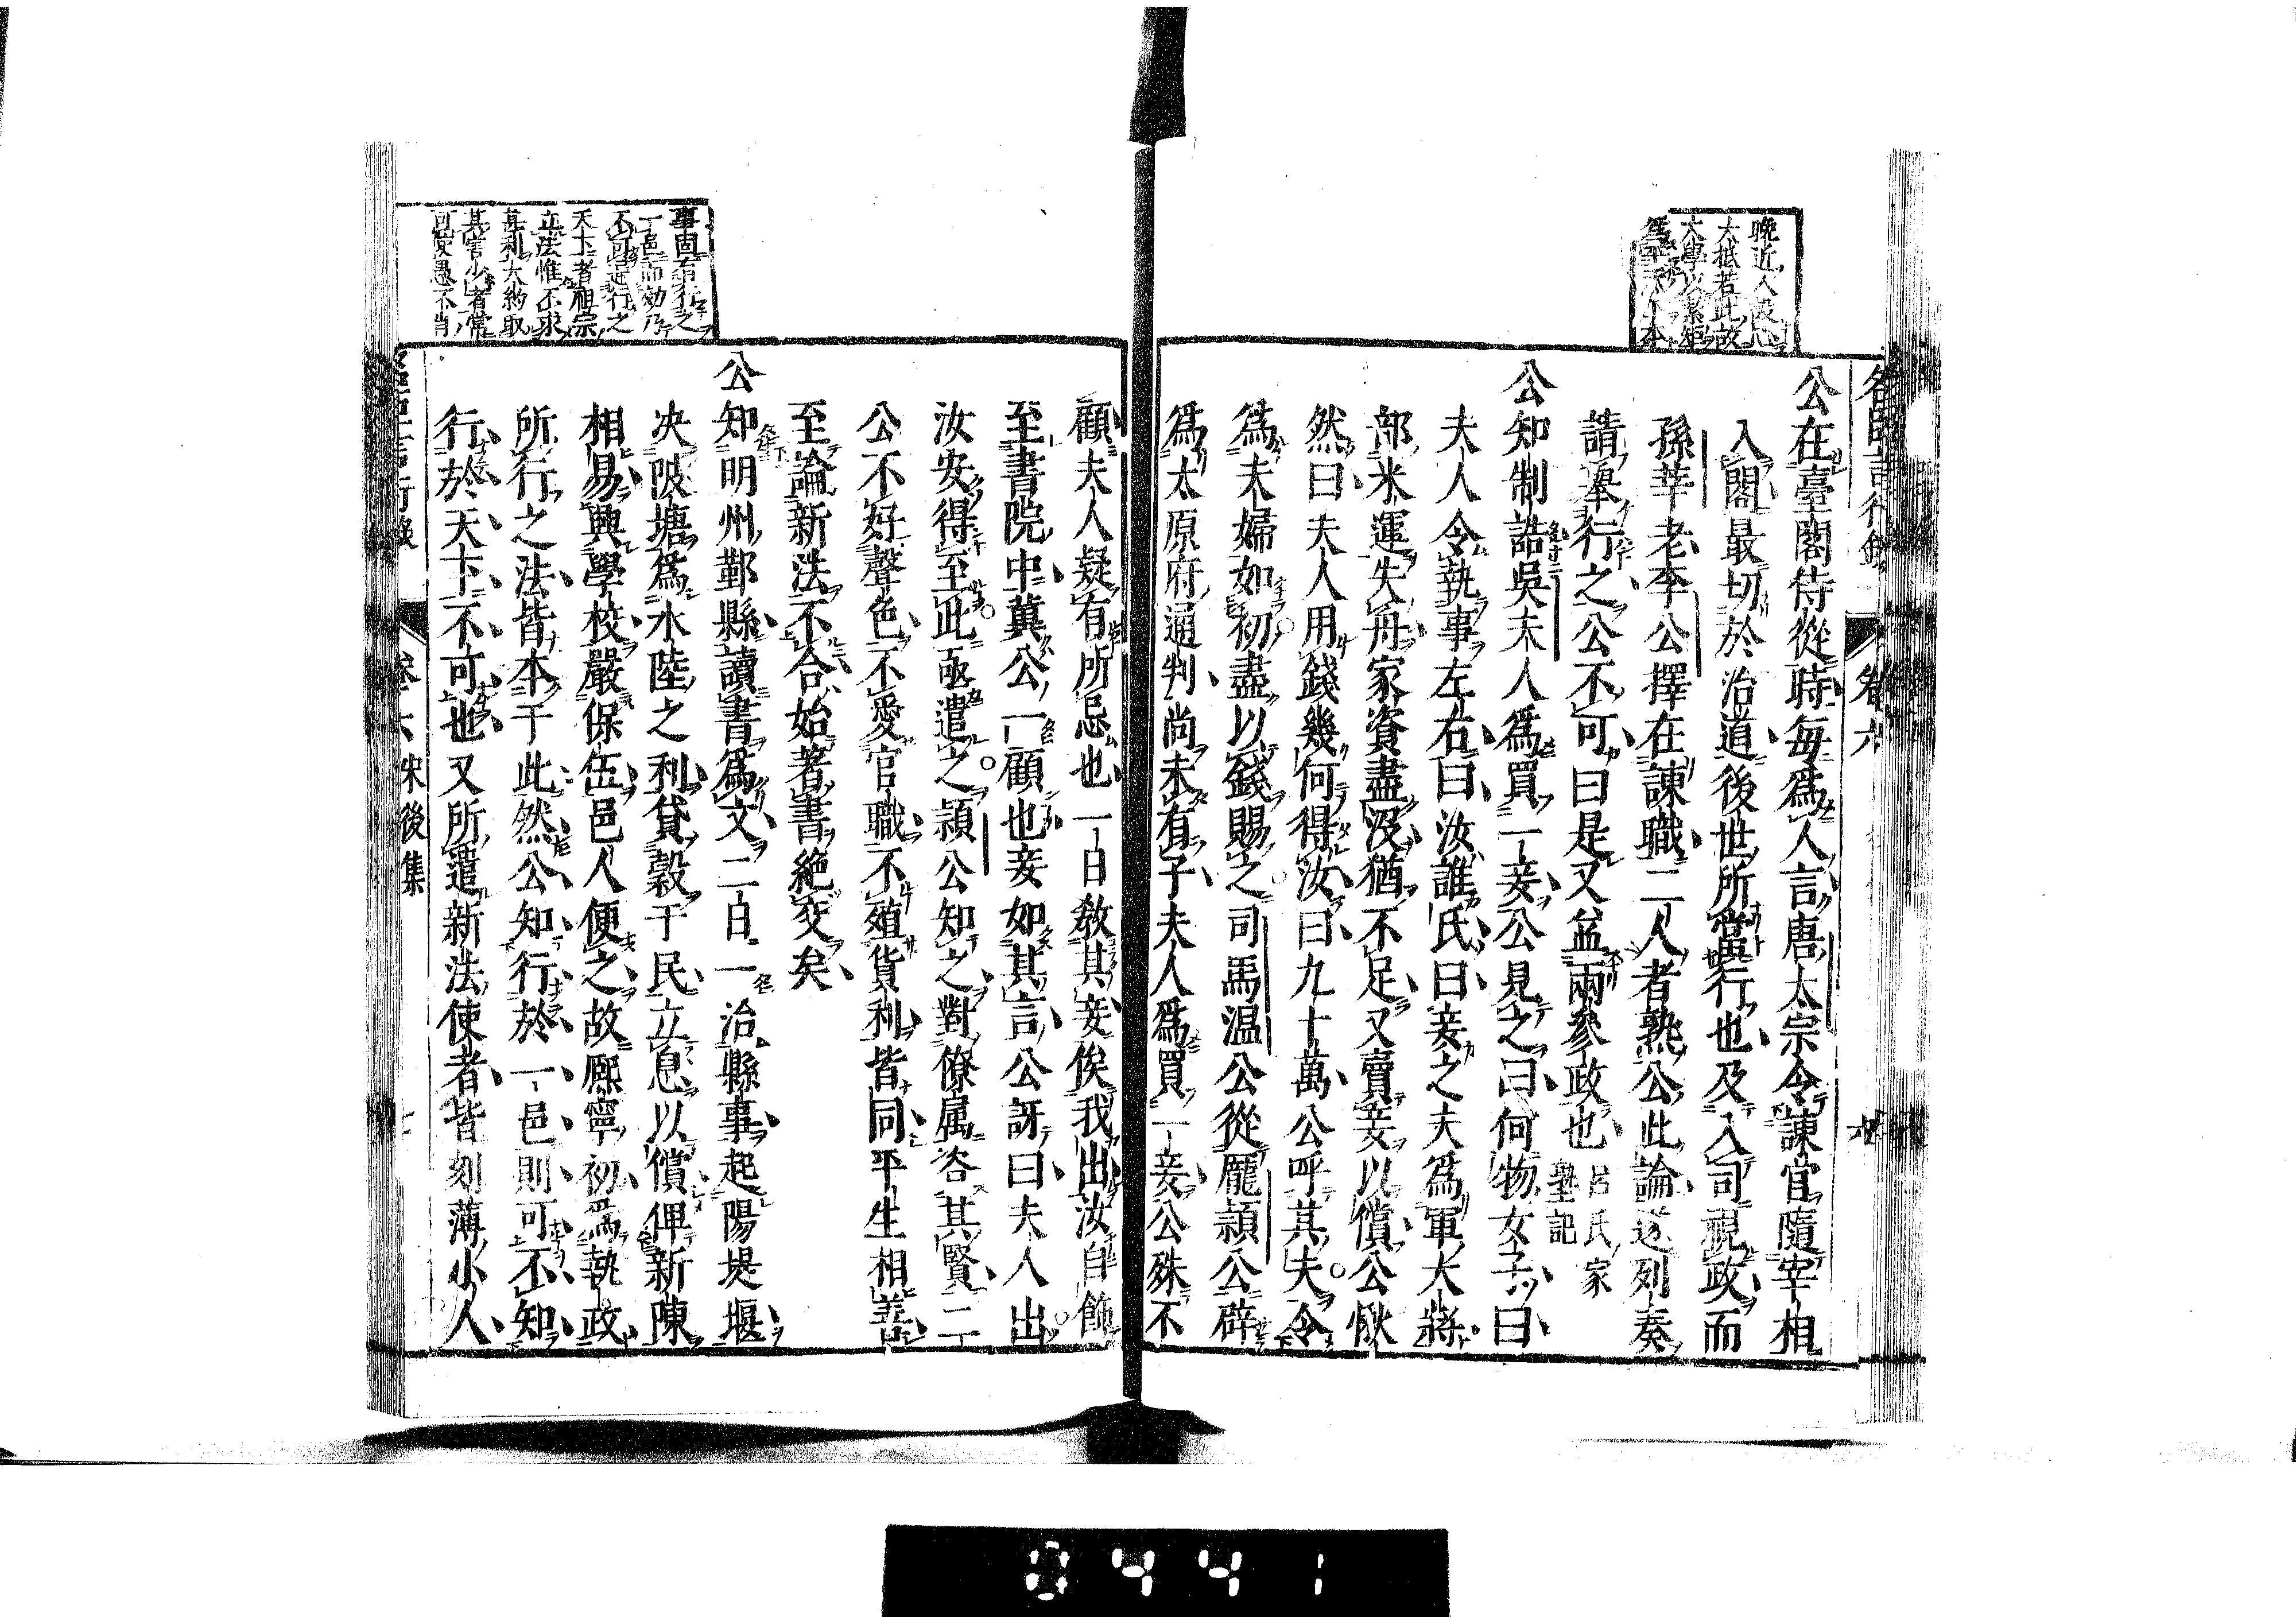 晩近人設心
大抵若此故
大學以絜矩
爲平天下本
公在臺閣侍從時每爲人言唐太宗令諫官隨宰相
入閤最切於治道後世所當行也及入司視政而
孫莘老李公擇在諫職二人者熟公此論遂列奏
請舉行之公不可曰是又益兩參政也呂氏家塾記
公知制誥吳夫人爲買一妾公見之曰何物女子曰
夫人令執事左右曰汝誰氏曰妾之夫爲軍大將
部米運失舟家資盡沒猶不足又賣妾以償公愀
然曰夫人用錢幾何得汝曰九十萬公呼其夫令
爲夫婦如初盡以錢賜之司馬温公從龎頴公辟
爲太原府通判尚未有子夫人爲買一妾公殊不
卷六
事固有行之
一邑而効乃
不可通行之
天下者祖宗
立法惟不求
甚利大約取
其害少者常
可愛愚不肖
顧夫人疑有所忌也一日教其妾俟我出汝自飾
至書院中冀公一顧也妾如其言公訝曰夫人出
汝安得至此亟遣之頴公知之對僚属咨其賢二
公不好聲色不愛官職不殖貨利皆同平生相善
至論新法不合始著書絶交矣
公知明州鄞縣讀書爲文二日一治縣事起陽堤堰
决陂塘爲水陸之利貸穀于民立息以償俾新陳
相易興學校嚴保伍邑人便之故熈寧初爲執政
所行之法皆本于此然公知行於一邑則可不知
行於天下不可也又所遣新法使者皆刻薄小人
卷六 宋後集
0441